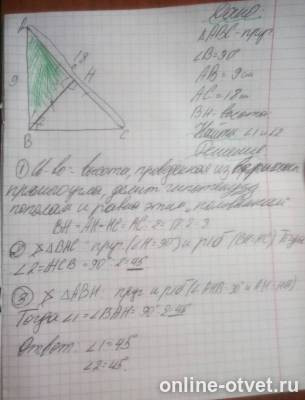 Дано:
△ABC - пруг.
∠B=90°
AB = 9 см
AC = 18 см
BH - высота
Найти ∠1 и ∠2
Решение
A
18
9
H
B
C
① высота, проведенная из вершины
прямого угла, делит гипотенузу
пополам и равна этим половинам
BH = AH = HC = AC : 2 =
② пруг. (∠H=90°) и р/б (BH=HC). Тогда
∠2 = ∠HCB = 90° : 2 = 45
③ △ABH - пруг и р/б (∠AHB=90° и AH=HB)
Тогда ∠1 = ∠BAH = 90° : 2 = 45
Ответ: ∠1 = 45
∠2 = 45.
online-otvet.ru